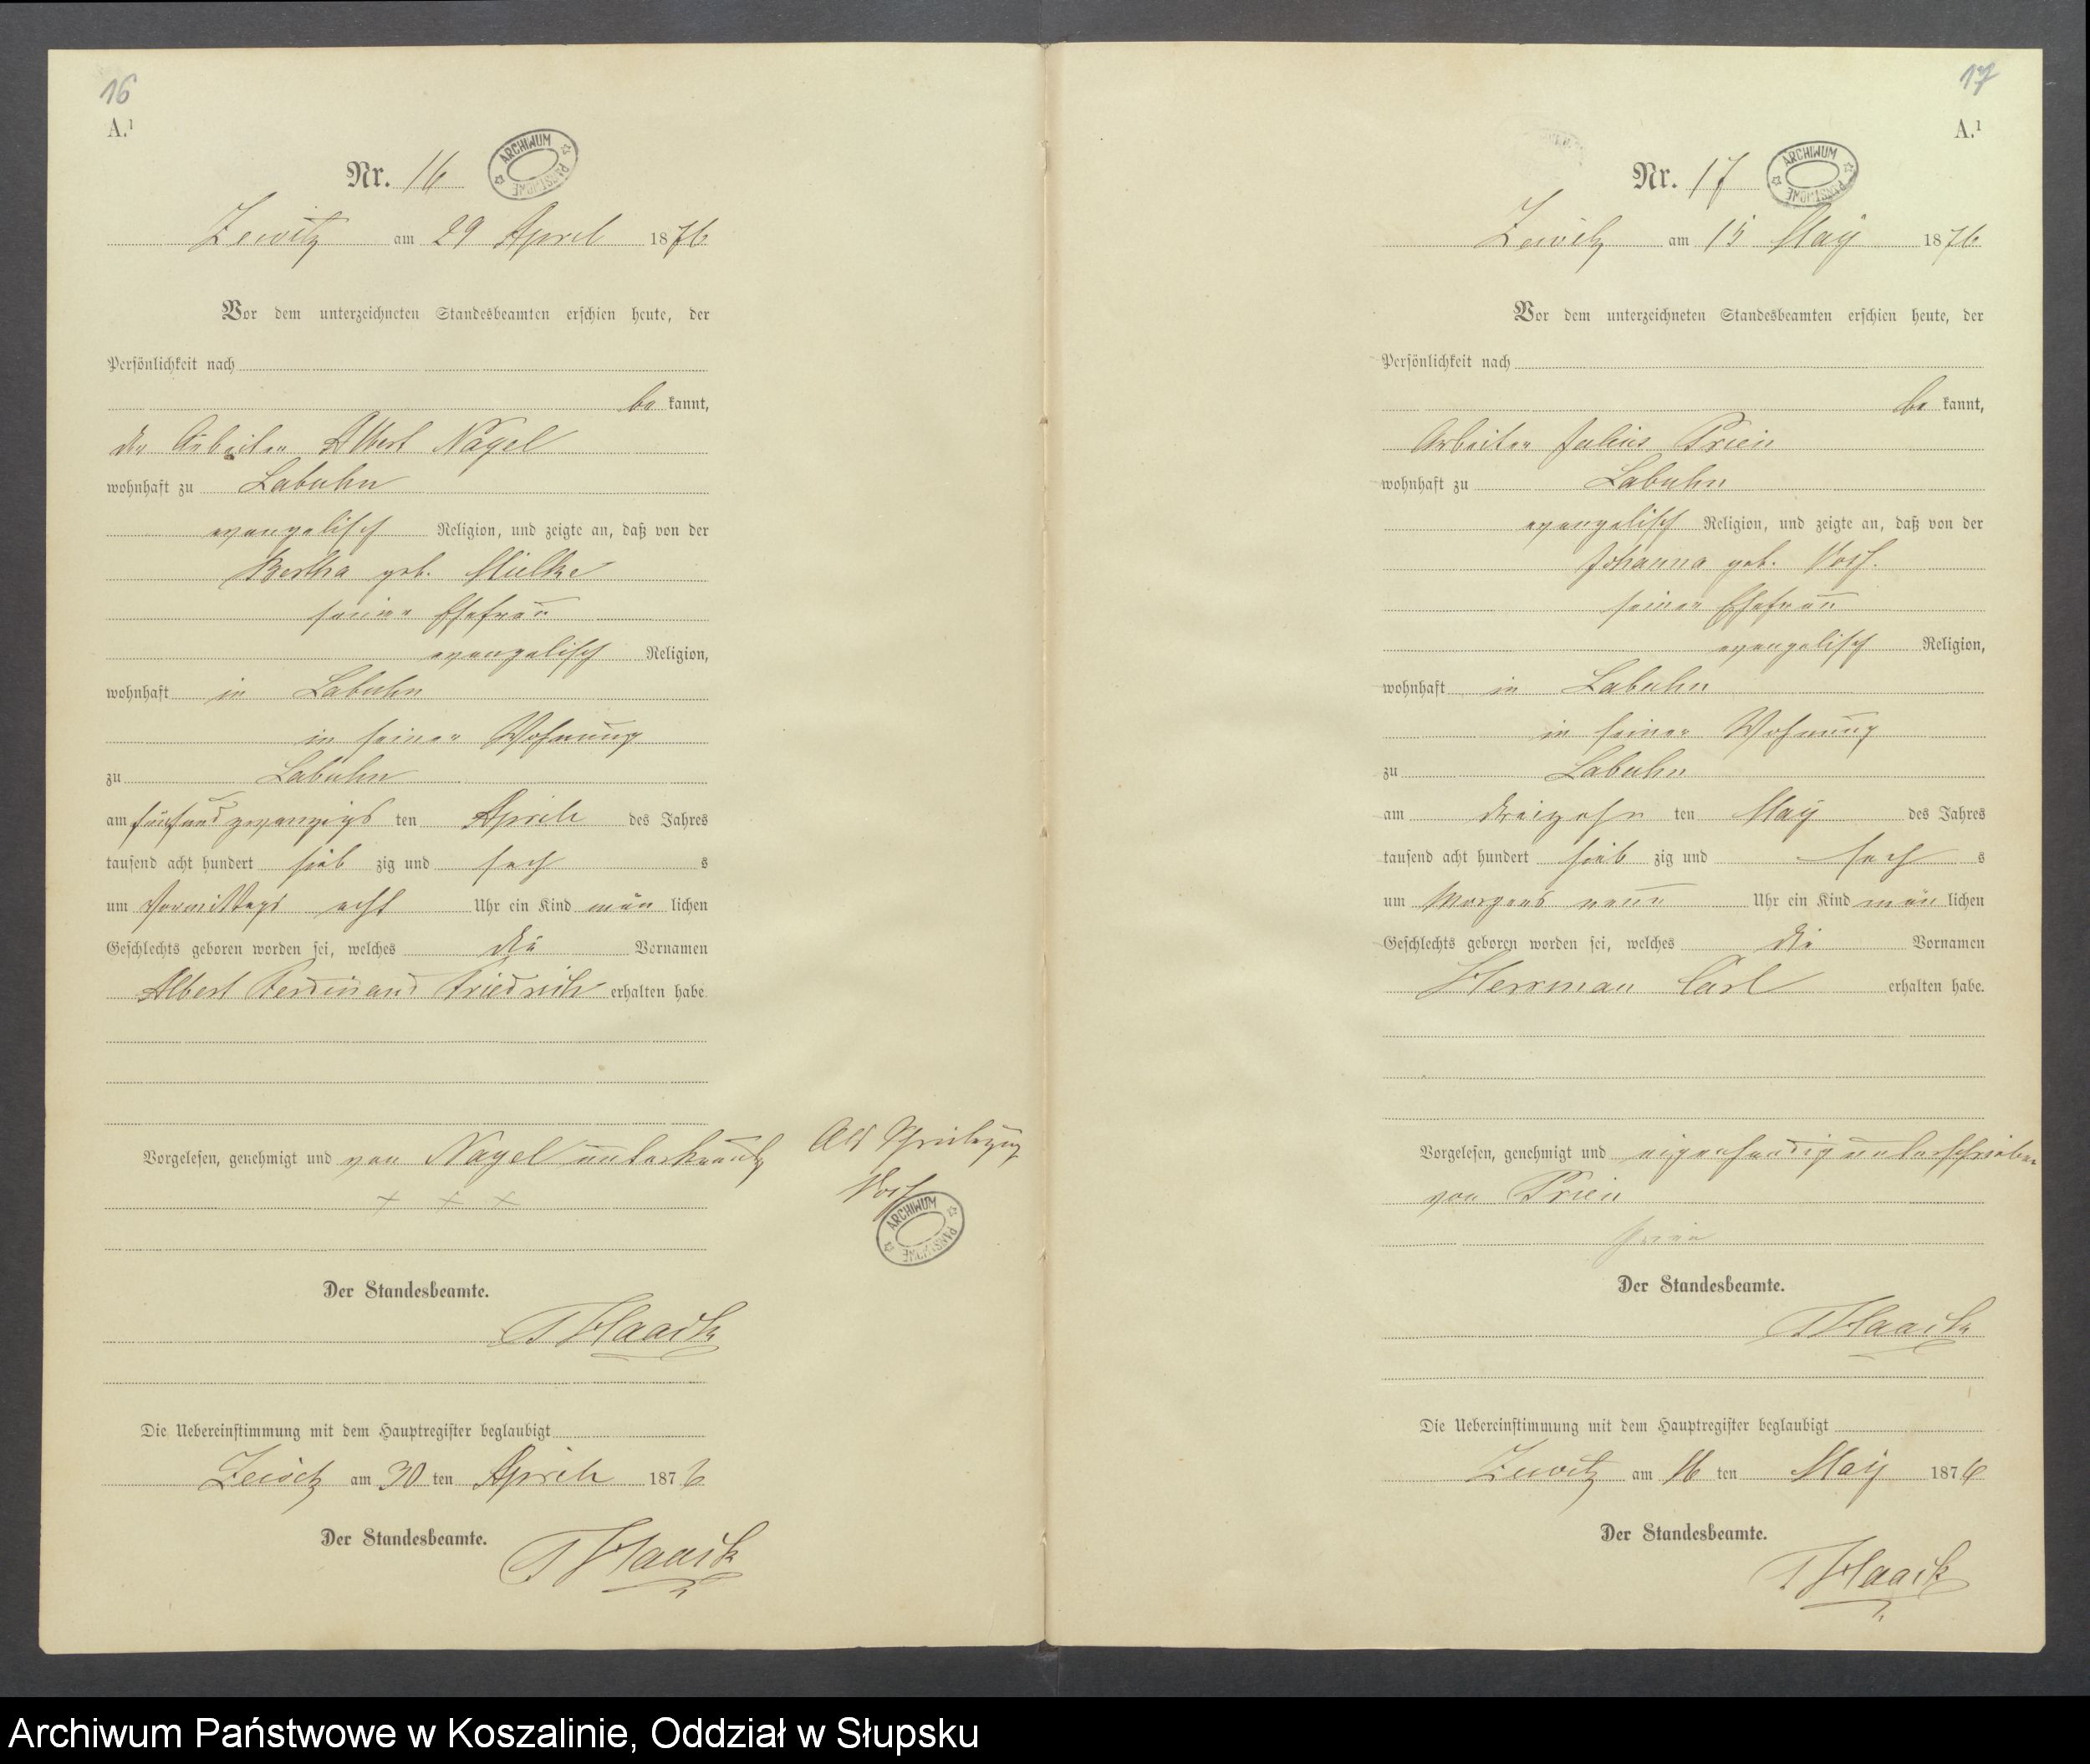 16
A.¹
Nr. 16
ARCHIWUM PAŃSTWOWE
Zewitz am 29 April 1876
Vor dem unterzeichneten Standesbeamten erschien heute, der
Persönlichkeit nach
be kannt,
der Arbeiter Albert Nagel
wohnhaft zu Labuhn
evangelisch Religion, und zeigte an, daß von der
Bertha geb. Mielke
seiner Ehefrau
evangelisch Religion,
wohnhaft in Labuhn
in seiner Wohnung
zu Labuhn
am fünfundzwanzigs ten April des Jahres
tausend acht hundert sieb zig und sech s
um Vormittags acht Uhr ein Kind män lichen
Geschlechts geboren worden sei, welches die Vornamen
Albert Ferdinand Friedrich erhalten habe.
Vorgelesen, genehmigt und von Nagel unterkreutz
+ + +
Als
ARCHIWUM PAŃSTWOWE
Der Standesbeamte.
Haack
Die Uebereinstimmung mit dem Hauptregister beglaubigt
Zewitz am 30 ten April 1876
Der Standesbeamte.
Haack
17
A.¹
Nr. 17
ARCHIWUM PAŃSTWOWE
Zewitz am 15 May 1876
Vor dem unterzeichneten Standesbeamten erschien heute, der
Persönlichkeit nach
be kannt,
Arbeiter Julius Prien
wohnhaft zu Labuhn
evangelisch Religion, und zeigte an, daß von der
Johanna geb. Voss.
seiner Ehefrau
evangelisch Religion,
wohnhaft in Labuhn
in seiner Wohnung
zu Labuhn
am dreizehn ten May des Jahres
tausend acht hundert sieb zig und sech s
um Morgens neun Uhr ein Kind män lichen
Geschlechts geboren worden sei, welches die Vornamen
Herrman Carl erhalten habe.
Vorgelesen, genehmigt und eigenhendig unterschrieben
von Prien
Prien
Der Standesbeamte.
Haack
Die Uebereinstimmung mit dem Hauptregister beglaubigt
Zewitz am 16 ten May 1876
Der Standesbeamte.
Haack
Archiwum Państwowe w Koszalinie, Oddział w Słupsku